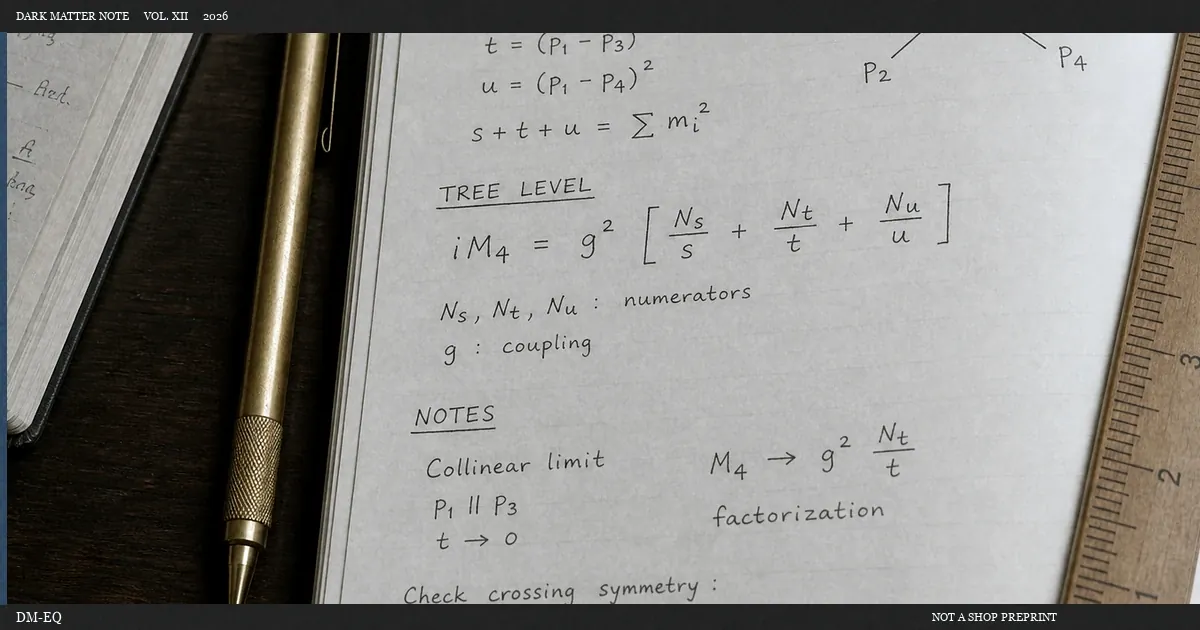 DARK MATTER NOTE VOL. XII 2026
t = (P₁ − P₃)
u = (P₁ − P₄)²
s + t + u = ∑ mᵢ²
P₂
P₄
TREE LEVEL
iM₄ = g² [ Nₛ/s + Nₜ/t + Nᵤ/u ]
Nₛ, Nₜ, Nᵤ : numerators
g : coupling
NOTES
Collinear limit
P₁ || P₃
t → 0
M₄ → g² Nₜ/t
factorization
Check crossing symmetry :
3
2
1
DM-EQ
NOT A SHOP PREPRINT